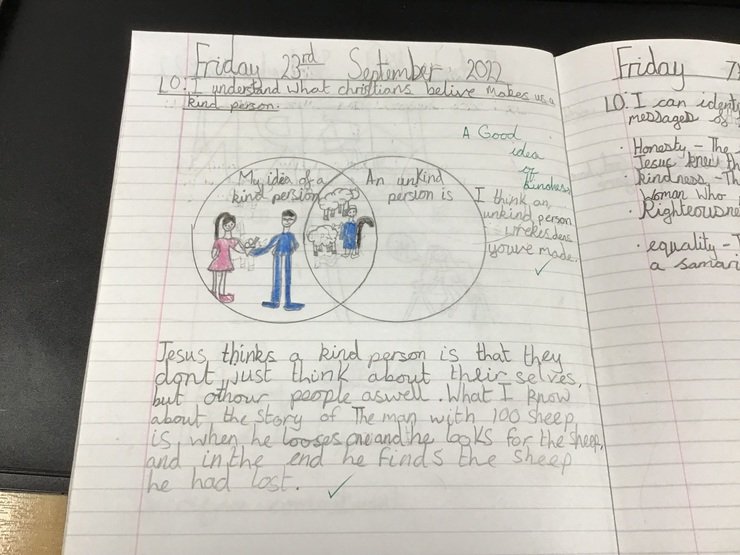 Friday 23rd September 2022
LO: I understand what christians belive makes us a
kind person.
A Good
idea
of
kindness
My idea of a
kind persion
An unkind
persion is
I think an
unkind person
wrekes dens
youve made.
Jesus thinks a kind person is that they
dont just think about their selves,
but othour people aswell. What I know
about the story of The man with 100 sheep
is when he looses one and he looks for the sheep,
and in the end he finds the sheep
he had lost.
Friday
LO: I can identi
messages of
• Honesty - The
Jesus knew th
• kindness - Th
woman who
• Righteousne
• equality - T
a samari